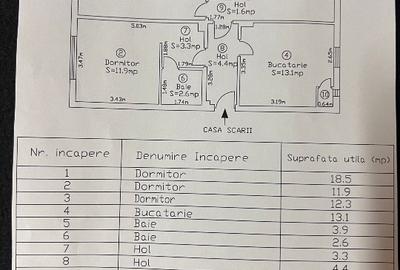 9
Hol
S=1.6mp
1.77m
1.28m
5.83m
7
Hol
S=3.3mp
8
Hol
S=4.4mp
2
Dormitor
S=11.9mp
3.47m
1.88m
1.79m
4
Bucatarie
S=13.1mp
2.65m
3.35m
3.28m
6
Baie
S=2.6mp
1.48m
10
3.43m
1.74m
3.19m
0.64m
CASA SCARII
Nr. incapere Denumire Incapere Suprafata utila (mp)
1 Dormitor 18.5
2 Dormitor 11.9
3 Dormitor 12.3
4 Bucatarie 13.1
5 Baie 3.9
6 Baie 2.6
7 Hol 3.3
8 Hol 4.4